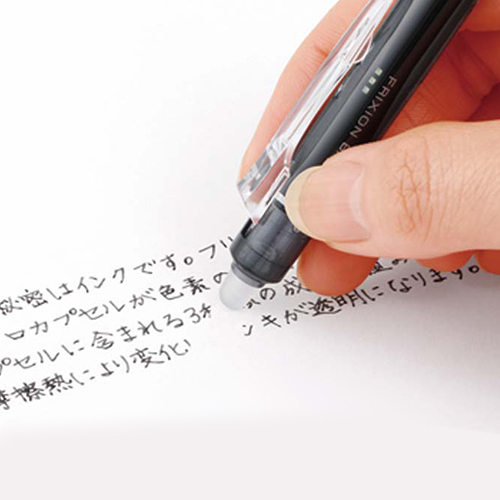 FRIXION B
秘密はインクです。フリ
ロカプセルが色素の の成
プセルに含まれる3 ンキが透明になります。
摩擦熱により変化